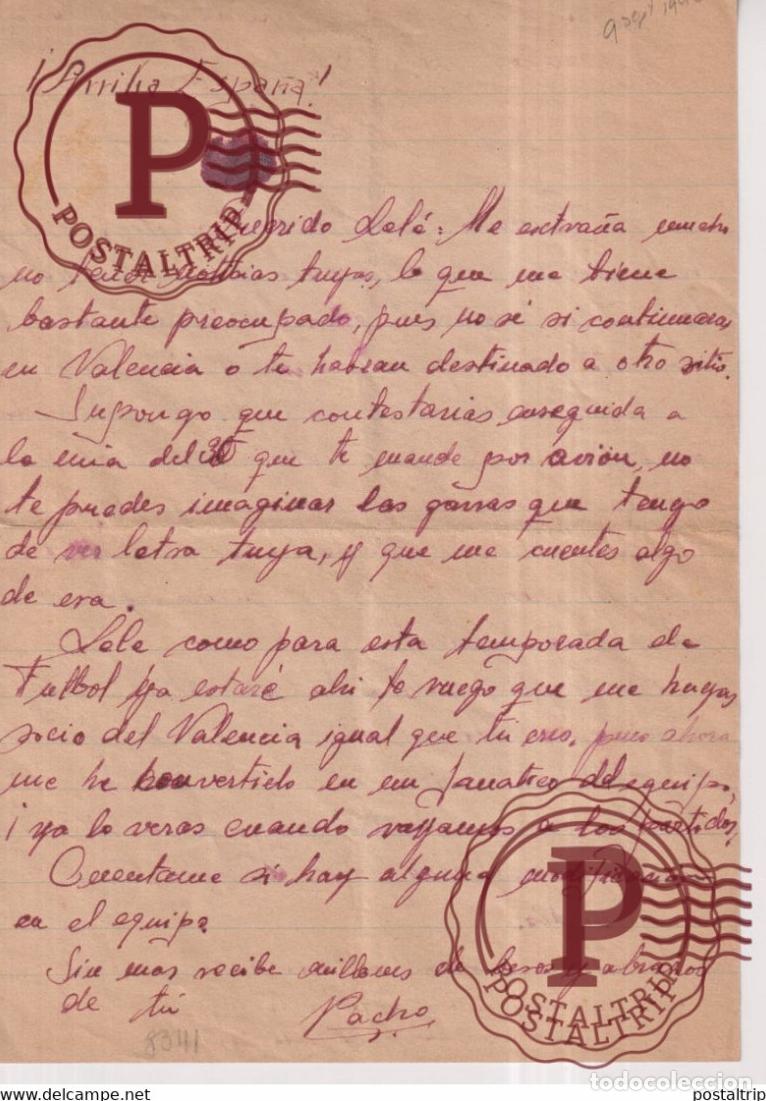 ¡Arriba España!
Querido Lelé: Me extraña mucho
no tener noticias tuyas, lo que me tiene
bastante preocupado, pues no sé si continuaras
en Valencia o te habran destinado a otro sitio.
Supongo que contestarias enseguida a
la mia del 30 que te mande por avión, no
te puedes imaginar las ganas que tengo
de ver letra tuya, y que me cuentes algo
de esa.
Lele como para esta temporada de
Futbol ya estaré ahi te ruego que me hagas
socio del Valencia igual que tú eres, pues ahora
me he convertido en un fanatico del equipo,
¡ya lo veras cuando vayamos a los partidos!
Cuentame si hay alguna modificacion
en el equipo.
Sin mas recibe millones de besos y abrazos
de tú Pacho
8341
P
POSTALTRIP
P
POSTALTRIP
POSTALTRIP
todocoleccion
www.delcampe.net
postaltrip